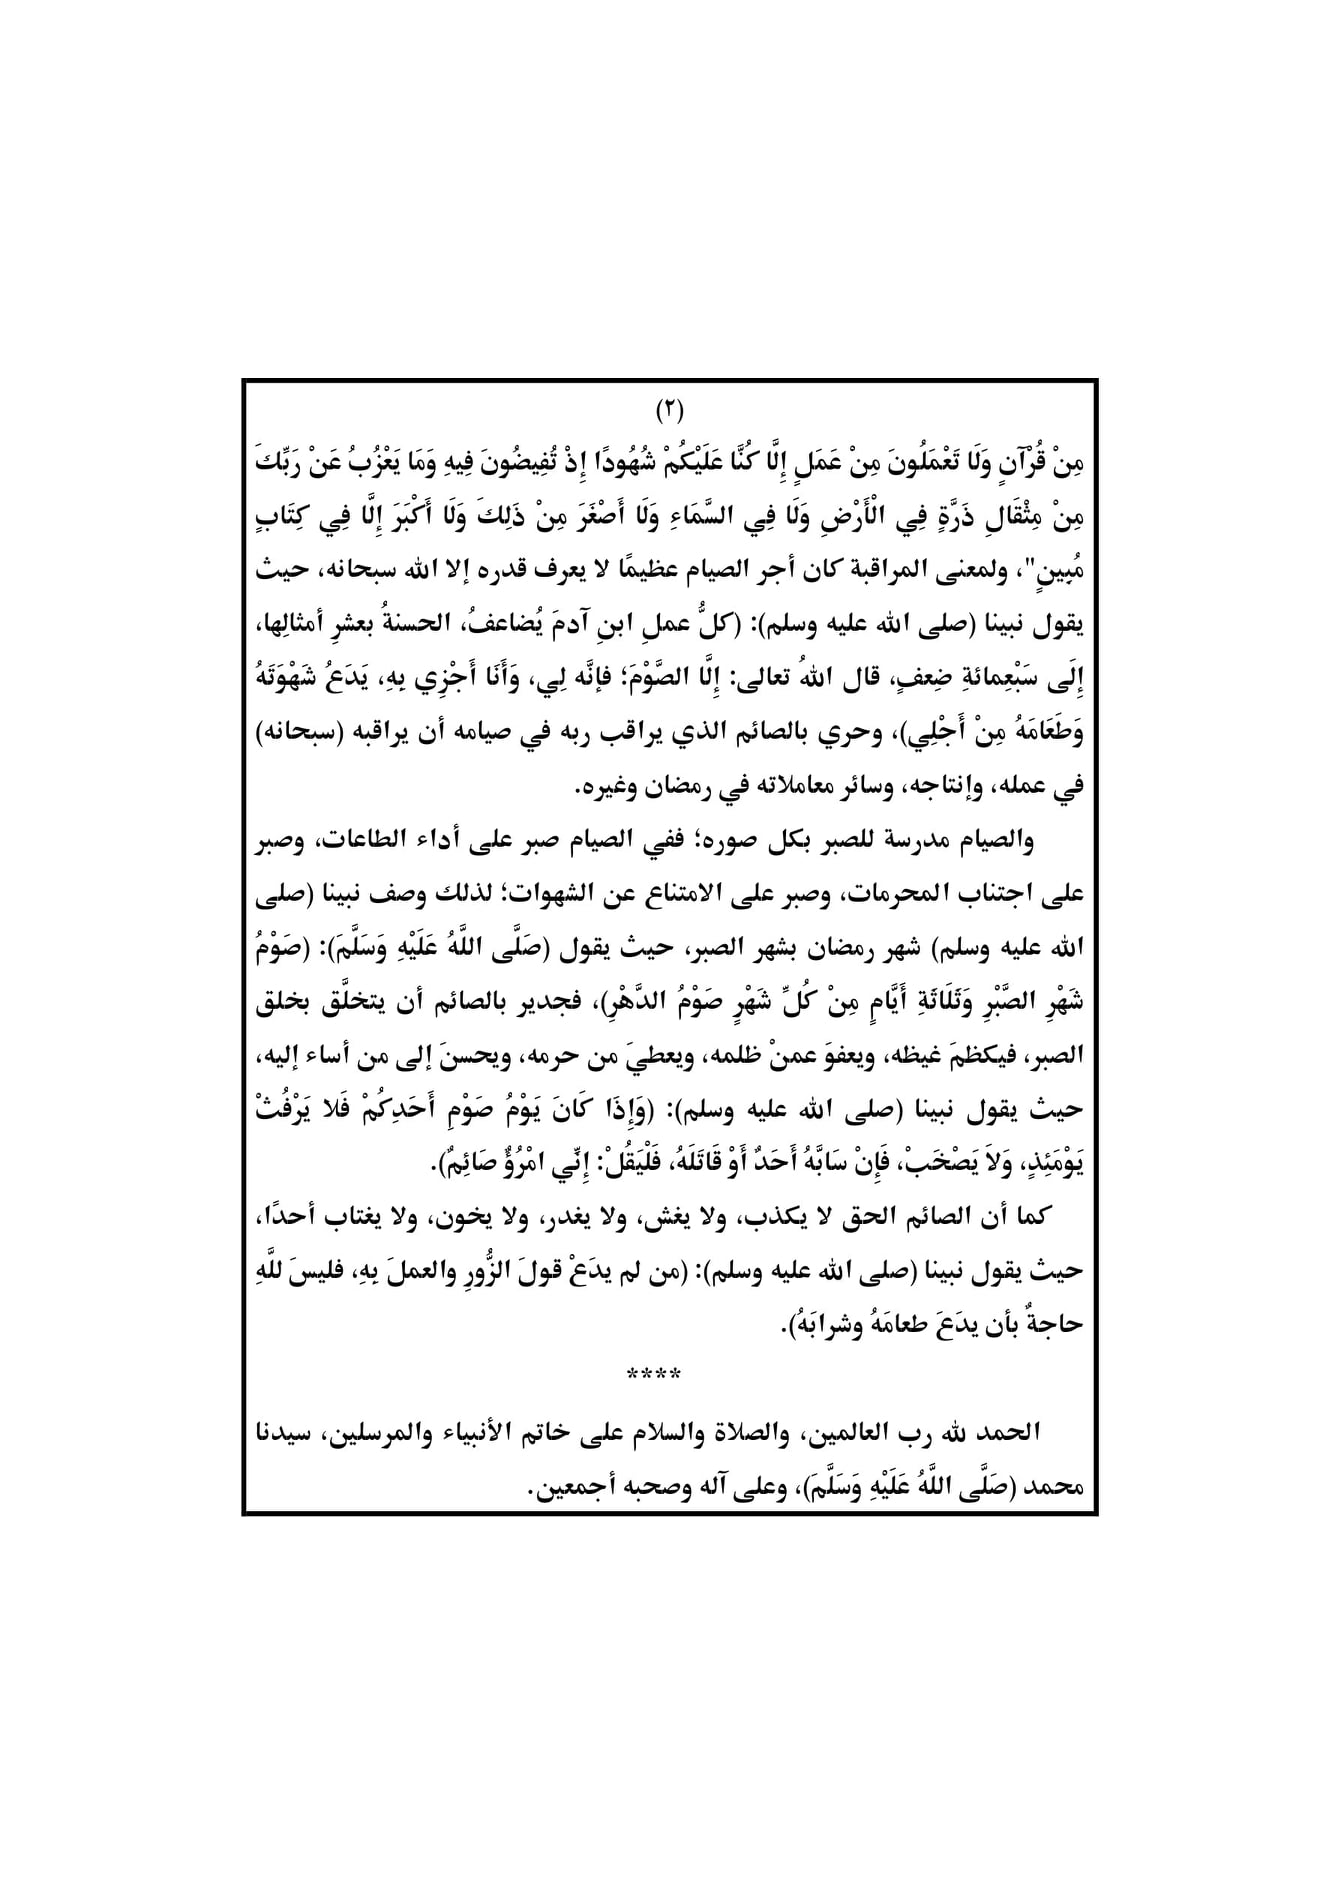 (٢)
مِنْ قُرْآنٍ وَلَا تَعْمَلُونَ مِنْ عَمَلٍ إِلَّا كُنَّا عَلَيْكُمْ شُهُودًا إِذْ تُفِيضُونَ فِيهِ وَمَا يَعْزُبُ عَنْ رَبِّكَ
مِنْ مِثْقَالِ ذَرَّةٍ فِي الْأَرْضِ وَلَا فِي السَّمَاءِ وَلَا أَصْغَرَ مِنْ ذَلِكَ وَلَا أَكْبَرَ إِلَّا فِي كِتَابٍ
مُبِينٍ"، ولمعنى المراقبة كان أجر الصيام عظيمًا لا يعرف قدره إلا الله سبحانه، حيث
يقول نبينا (صلى الله عليه وسلم): (كلُّ عملِ ابنِ آدمَ يُضاعفُ، الحسنةُ بعشرِ أمثالِها،
إِلَى سَبْعِمائةِ ضِعفٍ، قال اللهُ تعالى: إِلَّا الصَّوْمَ؛ فإنَّه لِي، وَأَنَا أَجْزِي بِهِ، يَدَعُ شَهْوَتَهُ
وَطَعَامَهُ مِنْ أَجْلِي)، وحري بالصائم الذي يراقب ربه في صيامه أن يراقبه (سبحانه)
في عمله، وإنتاجه، وسائر معاملاته في رمضان وغيره.
والصيام مدرسة للصبر بكل صوره؛ ففي الصيام صبر على أداء الطاعات، وصبر
على اجتناب المحرمات، وصبر على الامتناع عن الشهوات؛ لذلك وصف نبينا (صلى
الله عليه وسلم) شهر رمضان بشهر الصبر، حيث يقول (صَلَّى اللَّهُ عَلَيْهِ وَسَلَّمَ): (صَوْمُ
شَهْرِ الصَّبْرِ وَثَلَاثَةِ أَيَّامٍ مِنْ كُلِّ شَهْرٍ صَوْمُ الدَّهْرِ)، فجدير بالصائم أن يتخلَّق بخلق
الصبر، فيكظمَ غيظه، ويعفوَ عمنْ ظلمه، ويعطيَ من حرمه، ويحسنَ إلى من أساء إليه،
حيث يقول نبينا (صلى الله عليه وسلم): (وَإِذَا كَانَ يَوْمُ صَوْمِ أَحَدِكُمْ فَلا يَرْفُثْ
يَوْمَئِذٍ، وَلاَ يَصْخَبْ، فَإِنْ سَابَّهُ أَحَدٌ أَوْ قَاتَلَهُ، فَلْيَقُلْ: إِنِّي امْرُؤٌ صَائِمٌ).
كما أن الصائم الحق لا يكذب، ولا يغش، ولا يغدر، ولا يخون، ولا يغتاب أحدًا،
حيث يقول نبينا (صلى الله عليه وسلم): (من لم يدَعْ قولَ الزُّورِ والعملَ بِهِ، فليسَ للَّهِ
حاجةٌ بأن يدَعَ طعامَهُ وشرابَهُ).
****
الحمد لله رب العالمين، والصلاة والسلام على خاتم الأنبياء والمرسلين، سيدنا
محمد (صَلَّى اللَّهُ عَلَيْهِ وَسَلَّمَ)، وعلى آله وصحبه أجمعين.